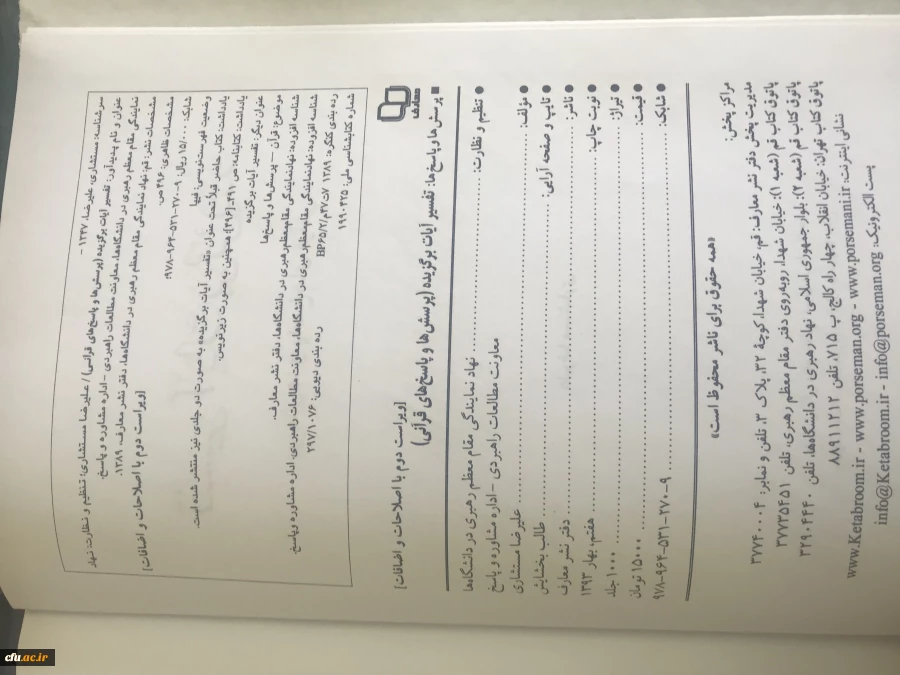 سرشناسه: مستشاری، علیرضا، ۱۳۴۷ -
عنوان و نام پدیدآور: تفسیر آیات برگزیده (پرسش‌ها و پاسخ‌های قرآنی) / علیرضا مستشاری؛ تنظیم و نظارت: نهاد
نمایندگی مقام معظم رهبری در دانشگاه‌ها، معاونت مطالعات راهبردی - اداره مشاوره و پاسخ.
مشخصات نشر: قم: نهاد نمایندگی مقام معظم رهبری در دانشگاه‌ها، دفتر نشر معارف، ۱۳۸۹.
مشخصات ظاهری: ۴۹۶ ص. [ویراست دوم با اصلاحات و اضافات]
شابک: ۱۵/۰۰۰ ریال: ۹-۲۷۰-۵۳۱-۹۶۴-۹۷۸
وضعیت فهرست‌نویسی: فیپا
یادداشت: کتاب حاضر قبلاً تحت عنوان «تفسیر آیات برگزیده» به صورت دو جلدی نیز منتشر شده است.
یادداشت: کتابنامه: ص. ۴۹۱ - [۴۹۶]؛ همچنین به صورت زیرنویس.
عنوان دیگر: تفسیر آیات برگزیده
موضوع: قرآن -- پرسش‌ها و پاسخ‌ها
شناسه افزوده: نهاد نمایندگی مقام معظم رهبری در دانشگاه‌ها، دفتر نشر معارف.
شناسه افزوده: نهاد نمایندگی مقام معظم رهبری در دانشگاه‌ها، معاونت مطالعات راهبردی، اداره مشاوره و پاسخ.
رده بندی کنگره: ۱۳۸۹ ۷ت۴۷م/BP۶۵/۲ رده بندی دیویی: ۲۹۷/۱۰۷۶
شماره کتابشناسی ملی: ۱۹۹۰۴۲۵
معارف
■ پرسش‌ها و پاسخ‌ها: تفسیر آیات برگزیده (پرسش‌ها و پاسخ‌های قرآنی)
[ویراست دوم با اصلاحات و اضافات]
● تنظیم و نظارت: نهاد نمایندگی مقام معظم رهبری در دانشگاه‌ها
معاونت مطالعات راهبردی - اداره مشاوره و پاسخ
● مؤلف: علیرضا مستشاری
● تایپ و صفحه آرایی: طالب بخشایش
● ناشر: دفتر نشر معارف
● نوبت چاپ: هفتم، بهار ۱۳۹۳
● تیراژ: ۱۰۰۰ جلد
● قیمت: ۱۵۰۰۰ تومان
● شابک: ۹-۲۷۰-۵۳۱-۹۶۴-۹۷۸
«همه حقوق برای ناشر محفوظ است»
مراکز پخش:
مدیریت پخش دفتر نشر معارف: قم، خیابان شهدا، کوچهٔ ۳۲، پلاک ۳، تلفن و نمابر: ۳۷۷۴۰۰۰۴
پاتوق کتاب قم (شعبه ۱): خیابان شهدا، روبه‌روی دفتر مقام معظم رهبری، تلفن ۳۷۷۳۵۴۵۱
پاتوق کتاب قم (شعبه ۲): بلوار جمهوری اسلامی، نهاد رهبری در دانشگاه‌ها، تلفن ۳۲۹۰۴۴۴۰
پاتوق کتاب تهران: خیابان انقلاب، چهار راه کالج، پ ۷۱۵، تلفن ۸۸۹۱۱۲۱۲
نشانی اینترنت: www.Ketabroom.ir - www.porseman.org - www.porsemani.ir
پست الکترونیک: info@Ketabroom.ir - info@porseman.org
cfu.ac.ir